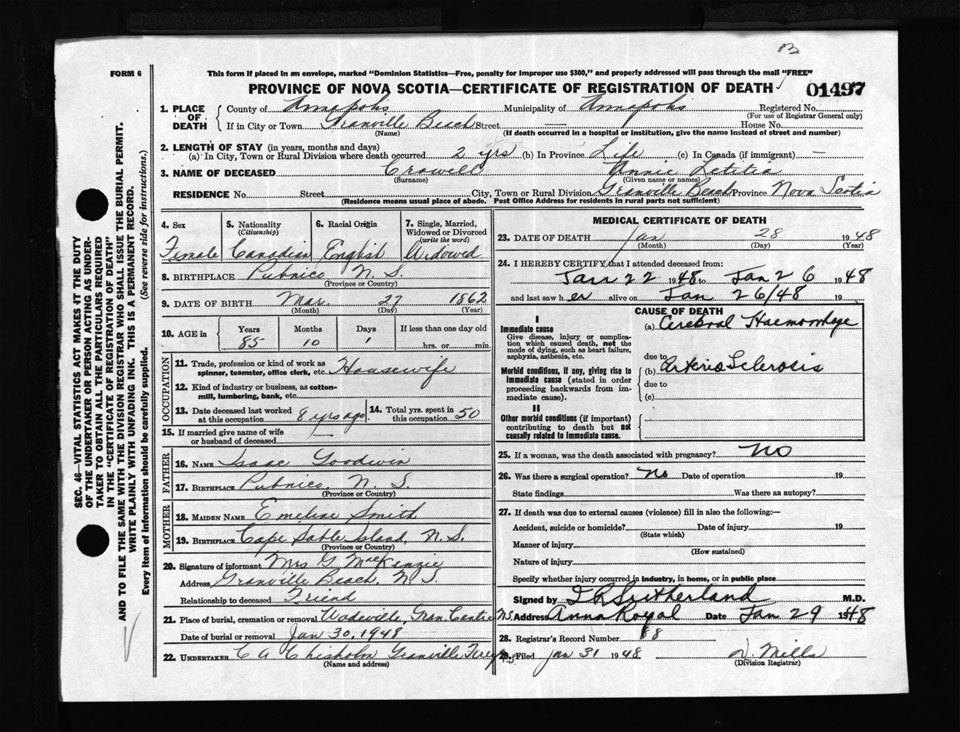 B
FORM 6
This form if placed in an envelope, marked "Dominion Statistics—Free, penalty for improper use $300," and properly addressed will pass through the mail "FREE"
PROVINCE OF NOVA SCOTIA—CERTIFICATE OF REGISTRATION OF DEATH
01497
1. PLACE OF DEATH
County of Annapolis Municipality of Annapolis Registered No.
(For use of Registrar General only)
If in City or Town Granville Beach Street — House No.
(Name) (If death occurred in a hospital or institution, give the name instead of street and number)
2. LENGTH OF STAY (in years, months and days)
(a) In City, Town or Rural Division where death occurred 2 yrs (b) In Province Life (c) In Canada (if immigrant) —
3. NAME OF DECEASED Crowell Annie Letitia
(Surname) (Given name or names)
RESIDENCE No. Street City, Town or Rural Division Granville Beach Province Nova Scotia
(Residence means usual place of abode. Post Office Address for residents in rural parts not sufficient)
4. Sex
Female
5. Nationality (Citizenship)
Canadian
6. Racial Origin
English
7. Single, Married, Widowed or Divorced (write the word)
Widowed
8. BIRTHPLACE Pubnico N. S.
(Province or Country)
9. DATE OF BIRTH Mar. 27 1862
(Month) (Day) (Year)
10. AGE in Years Months Days If less than one day old
85 10 1 hrs. or min.
OCCUPATION
11. Trade, profession or kind of work as spinner, teamster, office clerk, etc. Housewife
12. Kind of industry or business, as cotton-mill, lumbering, bank, etc.
13. Date deceased last worked at this occupation 8 yrs ago
14. Total yrs. spent in this occupation 50
15. If married give name of wife or husband of deceased —
FATHER
16. NAME Isaac Goodwin
17. BIRTHPLACE Pubnico, N. S.
(Province or Country)
MOTHER
18. MAIDEN NAME Emeline Smith
19. BIRTHPLACE Cape Sable Island, N. S.
(Province or Country)
20. Signature of informant Mrs G MacKenzie
Address Granville Beach, N S.
Relationship to deceased Friend
21. Place of burial, cremation or removal Wadeville, Gran. Centre N.S.
Date of burial or removal Jan 30, 1948
22. UNDERTAKER C A Chisholm Granville Ferry N.S
(Name and address)
MEDICAL CERTIFICATE OF DEATH
23. DATE OF DEATH Jan 28 1948
(Month) (Day) (Year)
24. I HEREBY CERTIFY that I attended deceased from:
Jan 22 1948 to Jan 26 1948
and last saw her alive on Jan 26/48 19
CAUSE OF DEATH
I
Immediate cause
Give disease, injury or complication which caused death, not the mode of dying, such as heart failure, asphyxia, asthenia, etc.
(a) Cerebral Haemorrhage
due to
Morbid conditions, if any, giving rise to immediate cause (stated in order proceeding backwards from immediate cause).
(b) Arterio Sclerosis
due to
(c)
II
Other morbid conditions (if important) contributing to death but not causally related to immediate cause.
25. If a woman, was the death associated with pregnancy? NO
26. Was there a surgical operation? No Date of operation 19
State findings Was there an autopsy?
27. If death was due to external causes (violence) fill in also the following:—
Accident, suicide or homicide? Date of injury 19
(State which)
Manner of injury
(How sustained)
Nature of injury
Specify whether injury occurred in industry, in home, or in public place
Signed by Sutherland M.D.
Address Anna Royal Date Jan 29 1948
28. Registrar's Record Number 88
29. Filed Jan 31 1948 D. Mills
(Division Registrar)
SEC. 46—VITAL STATISTICS ACT MAKES IT THE DUTY
OF THE UNDERTAKER OR PERSON ACTING AS UNDER-
TAKER TO OBTAIN ALL THE PARTICULARS REQUIRED
IN THE "CERTIFICATE OF REGISTRATION OF DEATH"
AND TO FILE THE SAME WITH THE DIVISION REGISTRAR WHO SHALL ISSUE THE BURIAL PERMIT.
WRITE PLAINLY WITH UNFADING INK. THIS IS A PERMANENT RECORD.
Every item of information should be carefully supplied. (See reverse side for instructions.)